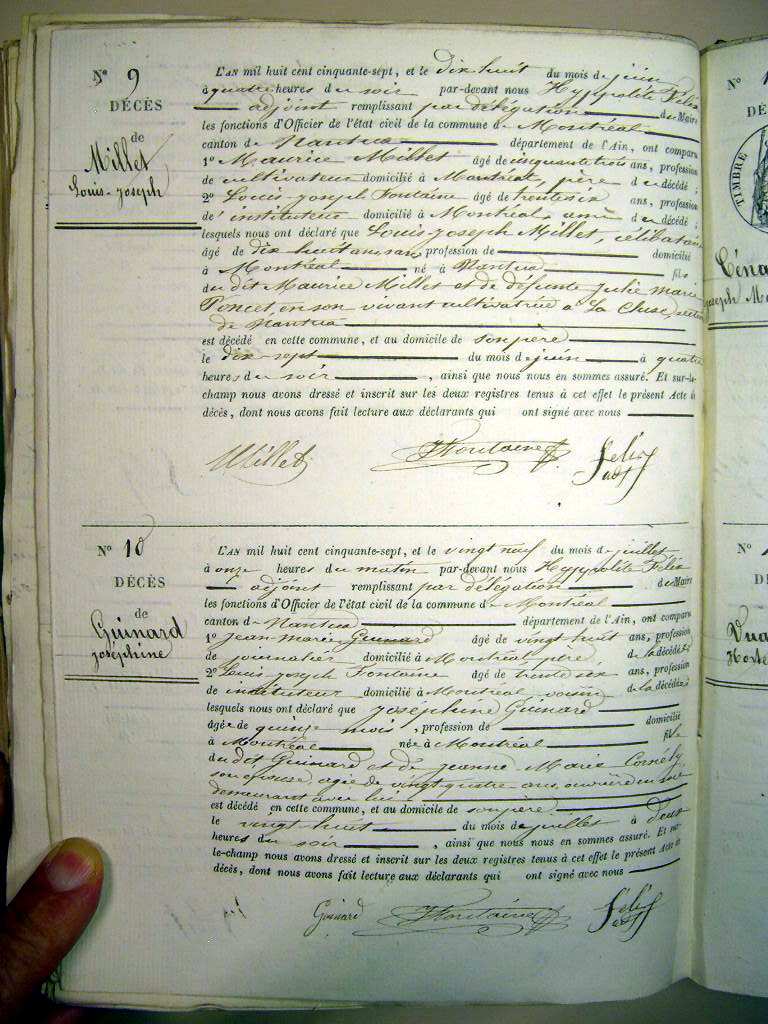 N° 9
DÉCÈS
de
Millet
Louis-Joseph
L'AN mil huit cent cinquante-sept, et le dix huit du mois de juin
à quatre heures du soir par-devant nous Hyppolite Félix
adjoint remplissant par délégation du Maire
les fonctions d'Officier de l'état civil de la commune de Montréal
canton de Nantua département de l'Ain, ont comparu
1° Maurice Millet âgé de cinquante trois ans, profession
de cultivateur domicilié à Montréal, père du décédé;
2° Louis joseph Fontaine âgé de trente six ans, profession
de instituteur domicilié à Montréal, ami du décédé;
lesquels nous ont déclaré que Louis joseph Millet, célibataire
âgé de dix huit ans, profession de domicilié
à Montréal né à Nantua fils
du dit Maurice Millet et de défunte julie marie
Poncet en son vivant cultivatrice a La Cluse, section
de Nantua
est décédé en cette commune, et au domicile de son père
le dix-sept du mois de juin à quatre
heures du soir, ainsi que nous nous en sommes assuré. Et sur-le-
champ nous avons dressé et inscrit sur les deux registres tenus à cet effet le présent Acte de
décès, dont nous avons fait lecture aux déclarants qui ont signé avec nous
Millet Fontaine Felix adj
N° 10
DÉCÈS
de
Guinard
joséphine
L'AN mil huit cent cinquante-sept, et le vingt neuf du mois de juillet
à onze heures du matin par-devant nous Hyppolite Félix
adjoint remplissant par délégation du Maire
les fonctions d'Officier de l'état civil de la commune de Montréal
canton de Nantua département de l'Ain, ont comparu
1° jean-marie Guinard âgé de vingt huit ans, profession
de journalier domicilié à Montréal père de la décédée
2° Louis joseph Fontaine âgé de trente six ans, profession
de instituteur domicilié à Montréal voisin de la décédée
lesquels nous ont déclaré que joséphine Guinard
âgée de quinze mois, profession de domicilié
à Montréal née à Montréal fille
du dit Guinard et de jeanne Marie
son épouse agée de vingt quatre ans, ouvrière en soie
demeurant avec lui
est décédé en cette commune, et au domicile de son père
le vingt huit du mois de juillet à deux
heures du soir, ainsi que nous nous en sommes assuré. Et sur-
le-champ nous avons dressé et inscrit sur les deux registres tenus à cet effet le présent Acte de
décès, dont nous avons fait lecture aux déclarants qui ont signé avec nous
Guinard Fontaine Felix adj
N°
TIMBRE
joseph
N°